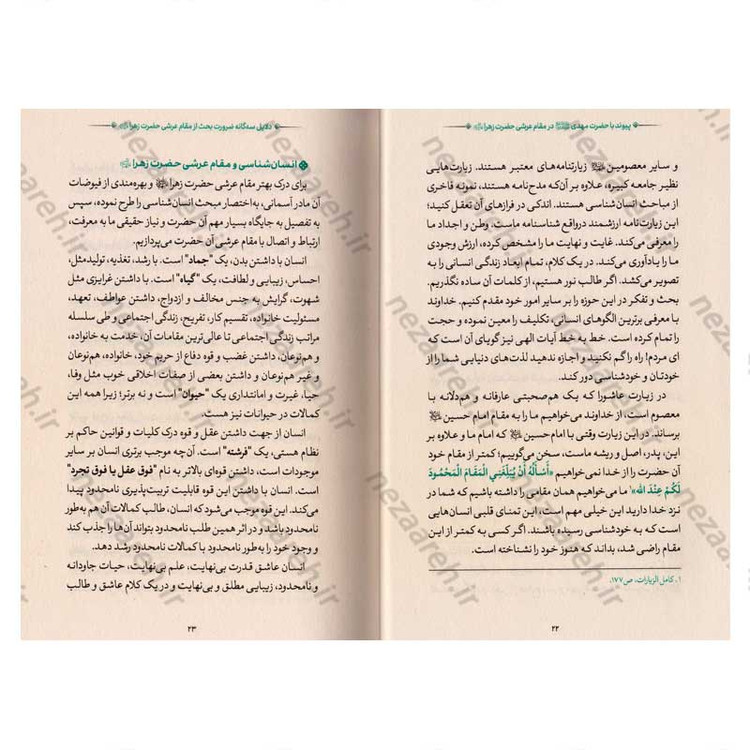 پیوند با حضرت مهدی در مقام عرشی حضرت زهرا
و سایر معصومین زیارتنامه‌های معتبر هستند. زیارت‌هایی
نظیر جامعه کبیره، علاوه بر آن‌که مدح‌نامه هستند، نمونه فاخری
از مباحث انسان‌شناسی هستند. اندکی در فرازهای آن تعقل کنید؛
این زیارتنامه ارزشمند درواقع شناسنامه ماست. وطن و اجداد ما
را معرفی می‌کند. غایت و نهایت ما را مشخص کرده، ارزش وجودی
ما را یادآوری می‌کند. در یک کلام، تمام ابعاد زندگی انسانی را به
تصویر می‌کشد. اگر طالب نور هستیم، از کلمات آن ساده نگذریم.
بحث و تفکر در این حوزه را بر سایر امور خود مقدم کنیم. خداوند
با معرفی برترین الگوهای انسانی، تکلیف را معین نموده و حجت
را تمام کرده است. خط به خط آیات الهی نیز گویای آن است که
ای مردم! راه را گم نکنید و اجازه ندهید لذت‌های دنیایی شما را از
خودتان و خودشناسی دور کند.
در زیارت عاشورا که یک هم‌صحبتی عارفانه و هم‌دلانه با
معصوم است، از خداوند می‌خواهیم ما را به مقام امام حسین
برساند. در این زیارت وقتی با امام حسین که امام ما و علاوه بر
این، پدر، اصل و ریشه ماست، سخن می‌گوییم؛ کمتر از مقام خود
آن حضرت را از خدا نمی‌خواهیم «أَسأَلُهُ أَن يُبَلِّغَنِي المَقامَ المَحمُودَ
لَكُم عِندَ الله»¹ ما می‌خواهیم همان مقامی را داشته باشیم که شما در
نزد خدا دارید این خیلی مهم است، این تمنای قلبی انسان‌هایی
است که به خودشناسی رسیده باشند. اگر کسی به کمتر از این
مقام راضی شد، بداند که هنوز خود را نشناخته است.
۱. کامل الزیارات، ص۱۷۷.
۲۲
دلایل سه‌گانه ضرورت بحث از مقام عرشی حضرت زهرا
انسان‌شناسی و مقام عرشی حضرت زهرا
برای درک بهتر مقام عرشی حضرت زهرا و بهره‌مندی از فیوضات
آن مادر آسمانی، به‌اختصار مبحث انسان‌شناسی را طرح نموده، سپس
به تفصیل به جایگاه بسیار مهم آن حضرت و نیاز حقیقی ما به معرفت،
ارتباط و اتصال با مقام عرشی آن حضرت می‌پردازیم.
انسان با داشتن بدن، یک "جماد" است. با رشد، تغذیه، تولیدمثل،
احساس، زیبایی و لطافت، یک "گیاه" است. با داشتن غرایزی مثل
شهوت، گرایش به جنس مخالف و ازدواج، داشتن عواطف، تعهد،
مسئولیت خانواده، تقسیم کار، تفریح، زندگی اجتماعی و طی سلسله
مراتب زندگی اجتماعی تا عالی‌ترین مقامات آن، خدمت به خانواده،
و هم‌نوعان، داشتن غضب و قوه دفاع از حریم خود، خانواده، هم‌نوعان
و غیر هم‌نوعان و داشتن بعضی از صفات اخلاقی خوب مثل وفا،
حیا، غیرت و امانتداری یک "حیوان" است و نه برتر؛ زیرا همه این
کمالات در حیوانات نیز هست.
انسان از جهت داشتن عقل و قوه درک کلیات و قوانین حاکم بر
نظام هستی، یک "فرشته" است. آن‌چه موجب برتری انسان بر سایر
موجودات است، داشتن قوه‌ای بالاتر به نام "فوق عقل یا فوق تجرد"
است. انسان با داشتن این قوه قابلیت تربیت‌پذیری نامحدود پیدا
می‌کند. این قوه موجب می‌شود که انسان، طالب کمالات آن هم به‌طور
نامحدود باشد و در اثر همین طلب نامحدود بتواند آن‌ها را جذب کند
و وجود خود را به‌طور نامحدود با کمالات نامحدود رشد دهد.
انسان عاشق قدرت بی‌نهایت، علم بی‌نهایت، حیات جاودانه
و نامحدود، زیبایی مطلق و بی‌نهایت و در یک کلام عاشق و طالب
۲۳
nezaareh.ir